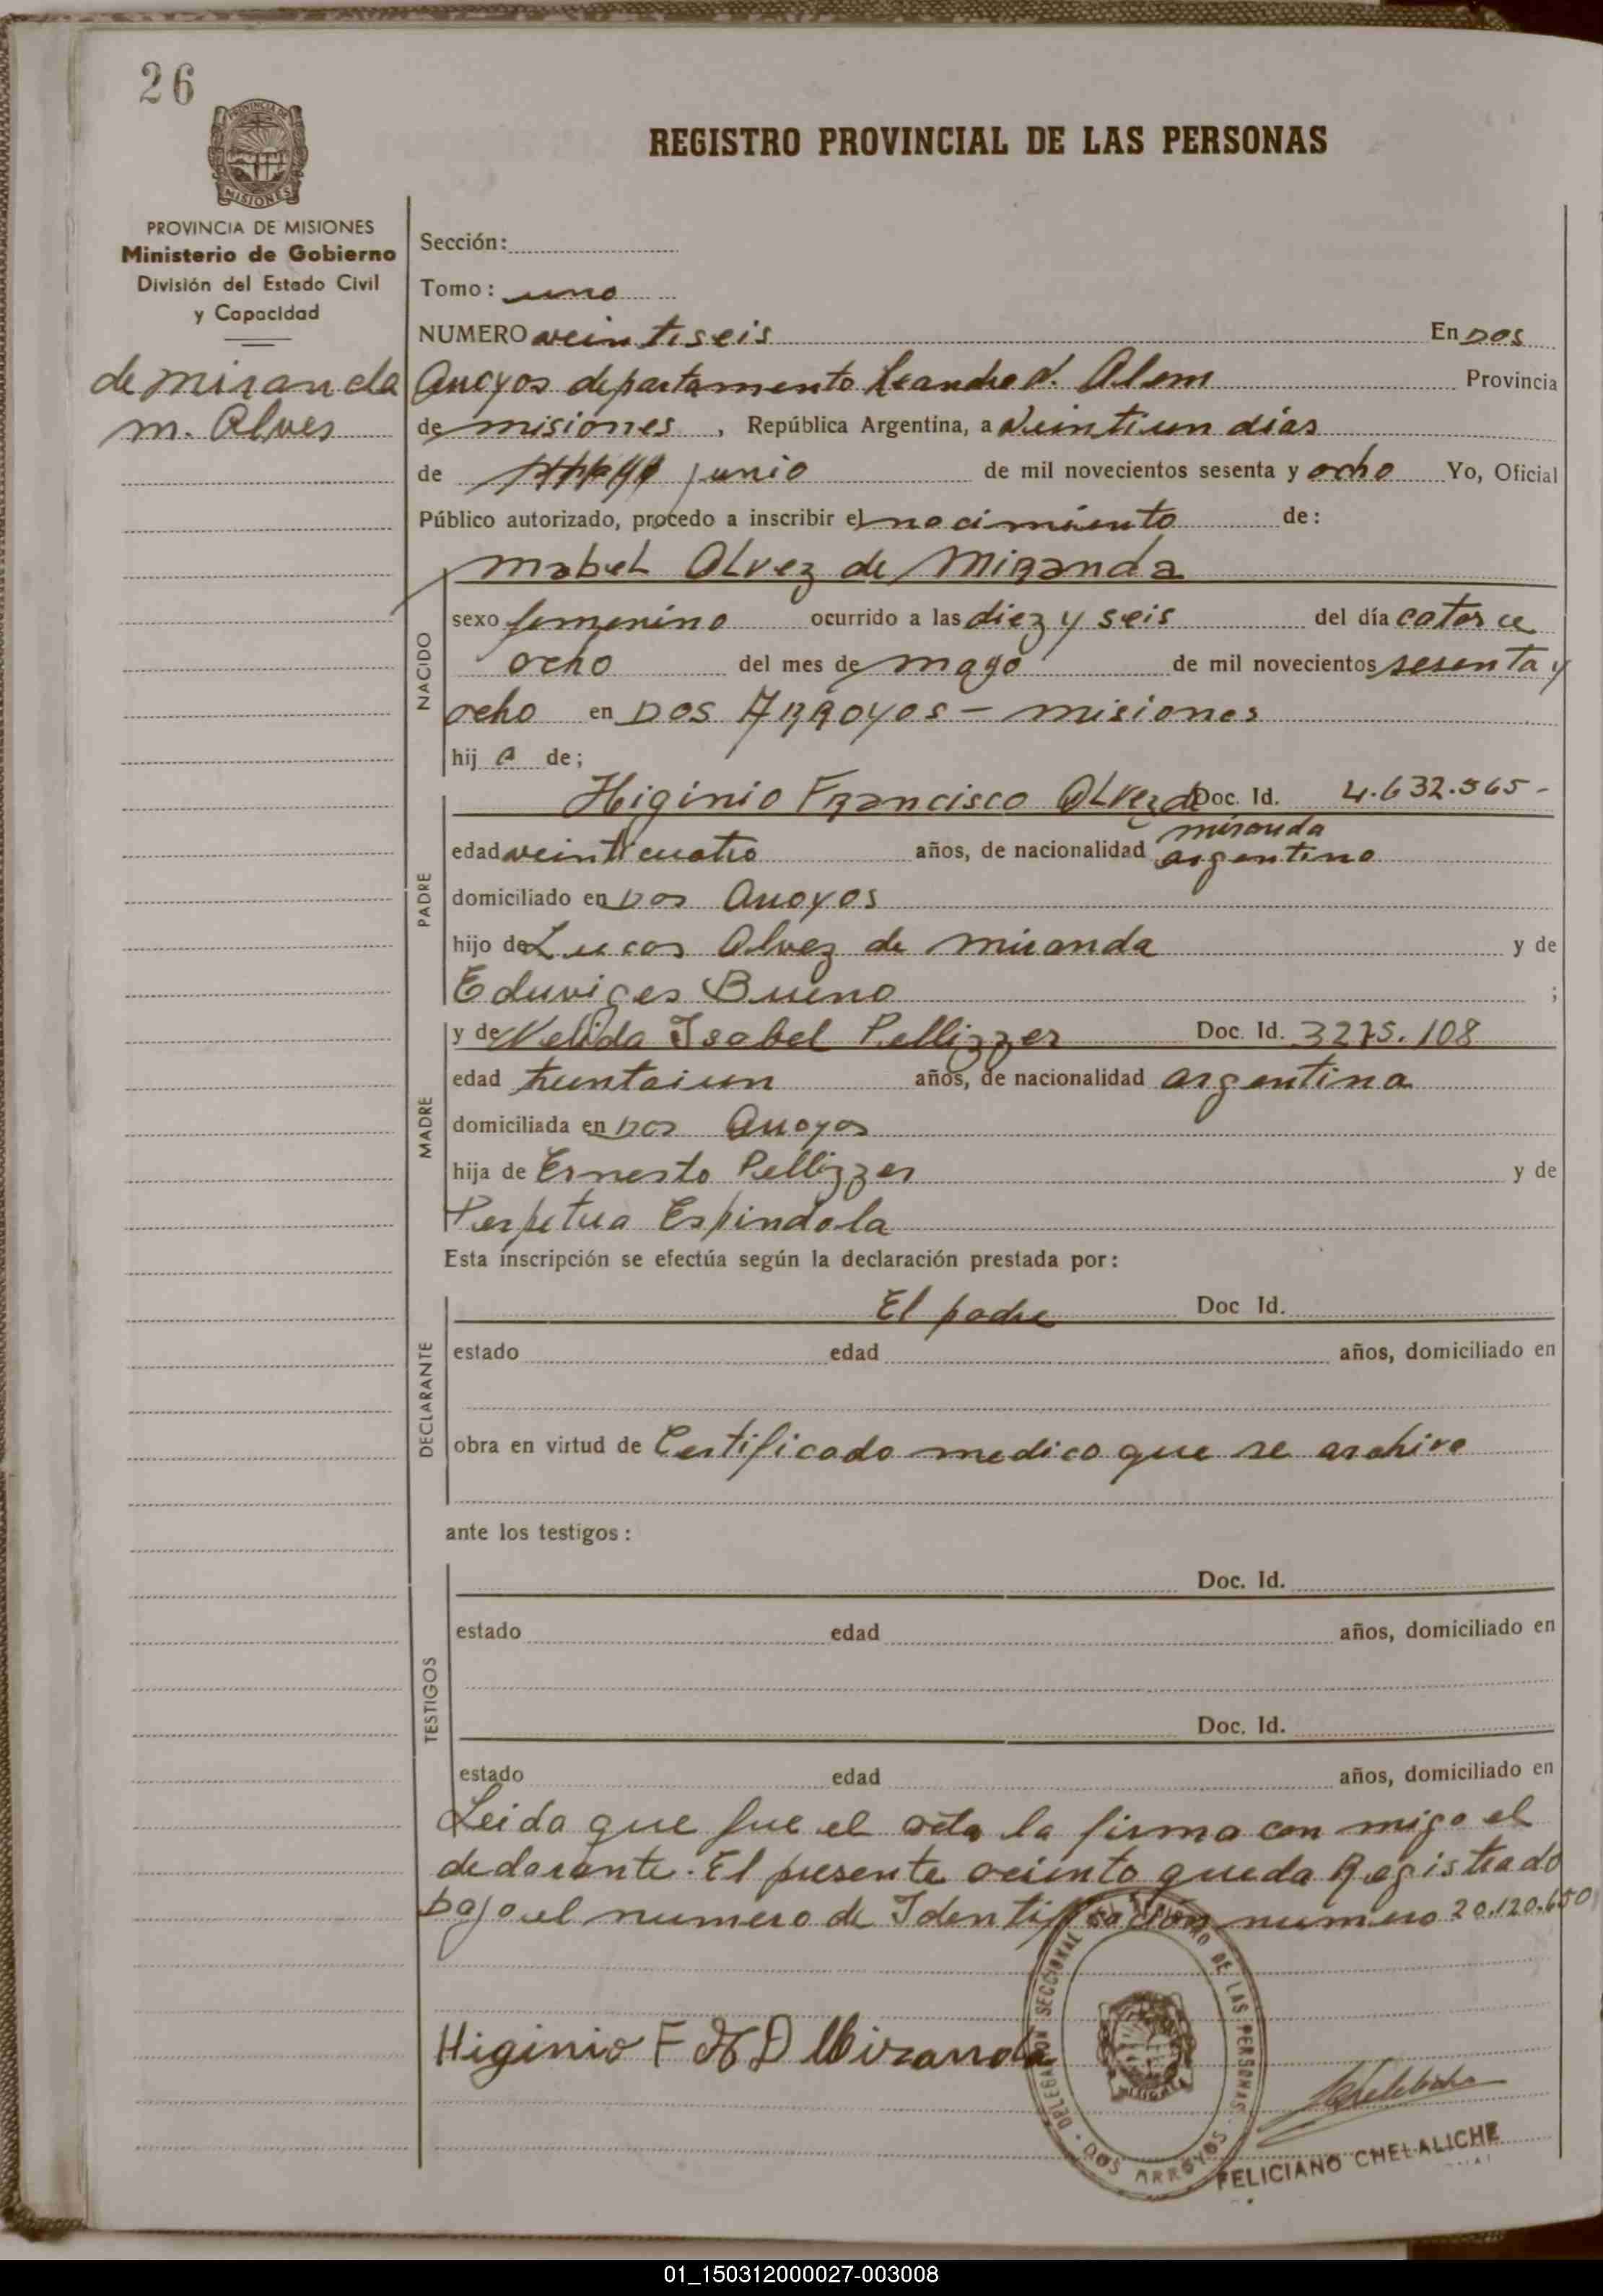 26
PROVINCIA DE
MISIONES
REGISTRO PROVINCIAL DE LAS PERSONAS
PROVINCIA DE MISIONES
Ministerio de Gobierno
División del Estado Civil
y Capacidad
de miranda
m. Alves
Sección:
Tomo: uno
NUMERO veintiseis En Dos
Arroyos departamento Leandro N. Alem Provincia
de misiones, República Argentina, a veintiun días
de junio de mil novecientos sesenta y ocho Yo, Oficial
Público autorizado, procedo a inscribir el nacimiento de:
NACIDO
Mabel Alvez de Miranda
sexo femenino ocurrido a las diez y seis del día catorce
ocho del mes de mayo de mil novecientos sesenta y
ocho en Dos Arroyos - misiones
hij a de;
PADRE
Higinio Francisco Alvez de Doc. Id. 4.632.565-
miranda
edad veinticuatro años, de nacionalidad argentino
domiciliado en Dos Arroyos
hijo de Lucas Alvez de miranda y de
Eduviges Bueno ;
MADRE
y de Nelida Isabel Pellizzer Doc. Id. 3275.108
edad treintaiun años, de nacionalidad argentina
domiciliada en Dos Arroyos
hija de Ernesto Pellizzer y de
Perpetua Espindola
Esta inscripción se efectúa según la declaración prestada por:
DECLARANTE
El padre Doc Id.
estado edad años, domiciliado en
obra en virtud de Certificado medico que se archiva
ante los testigos:
TESTIGOS
Doc. Id.
estado edad años, domiciliado en
Doc. Id.
estado edad años, domiciliado en
Leida que fue el acta la firma con migo el
declarante. El presente aciento queda Registrado
bajo el numero de Identificación numero 20.120.650
Higinio F A D Miranda
DELEGACION SECCIONAL DEL REGISTRO DE LAS PERSONAS
DOS ARROYOS
FELICIANO CHELALICHE
01_150312000027-003008